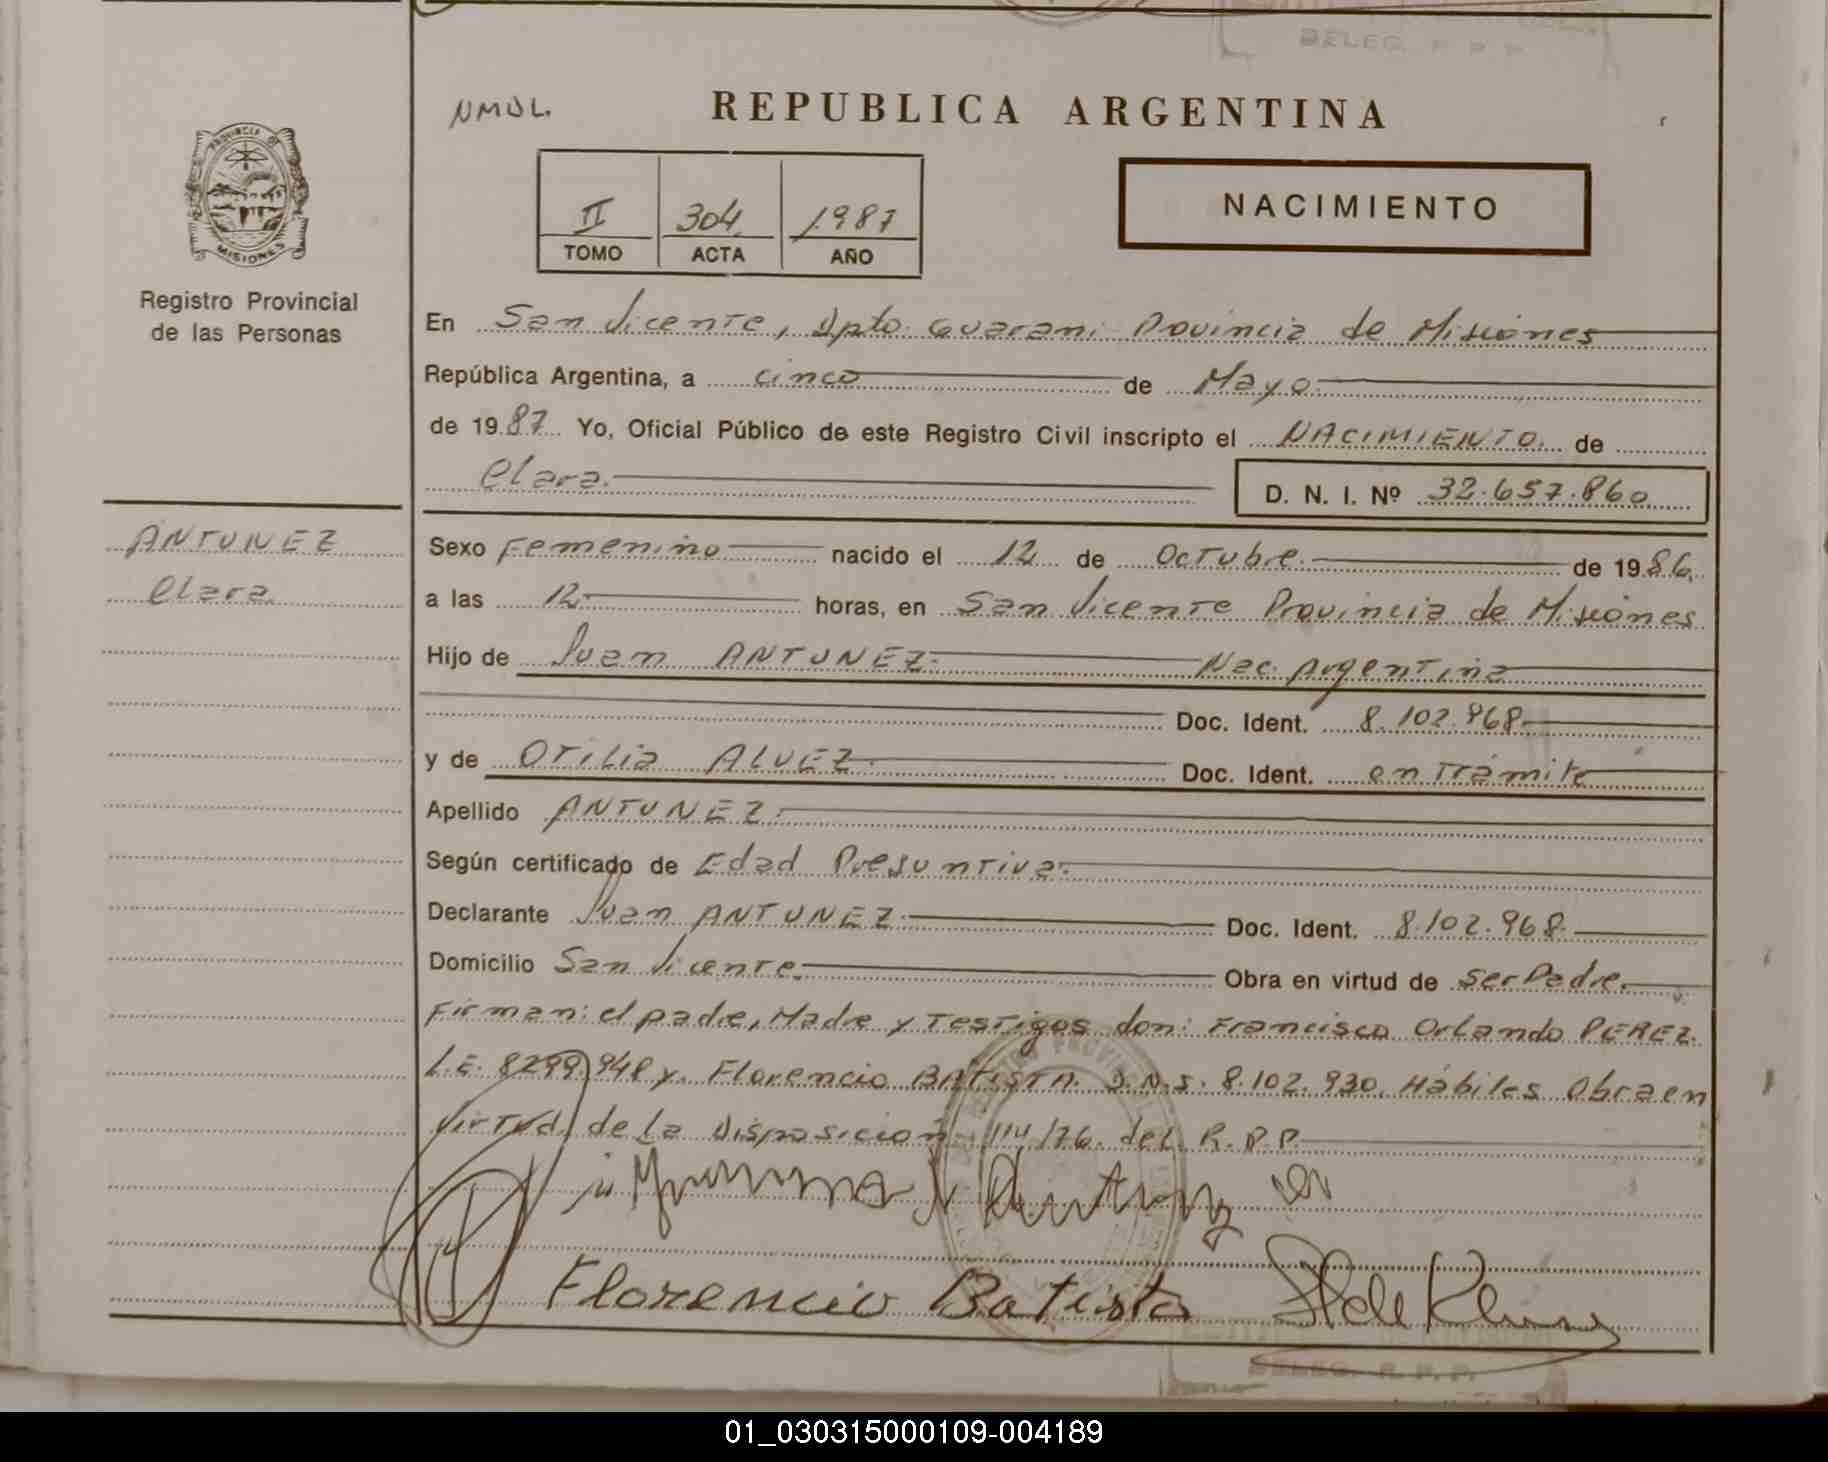 DELEG. R. P. P.
NMDL.
REPUBLICA ARGENTINA
PROVINCIA DE
MISIONES
Registro Provincial
de las Personas
II 304 1987
TOMO ACTA AÑO
NACIMIENTO
En San Vicente, Dpto. Guarani Provincia de Misiones
República Argentina, a cinco de Mayo
de 1987 Yo, Oficial Público de este Registro Civil inscripto el NACIMIENTO de
Clara.
D. N. I. Nº 32.657.860
ANTUNEZ
Clara
Sexo Femenino nacido el 12 de Octubre. de 1986.
a las 12 horas, en San Vicente Provincia de Misiones
Hijo de Juan ANTUNEZ. Nac. Argentina
Doc. Ident. 8.102.968
y de Otilia ALVEZ. Doc. Ident. en Trámite
Apellido ANTUNEZ.
Según certificado de Edad Presuntiva.
Declarante Juan ANTUNEZ. Doc. Ident. 8.102.968.
Domicilio San Vicente. Obra en virtud de ser Padre.
Firman: el padre, Madre y Testigos don: Francisco Orlando PEREZ.
L.E. 8299.948 y. Florencio BATISTA. D.N.I. 8.102.930. Hábiles Obra en
virtud de la Disposicion 114/76. del R.P.P.
Florencio Batista
DELEG. R. P. P.
01_030315000109-004189